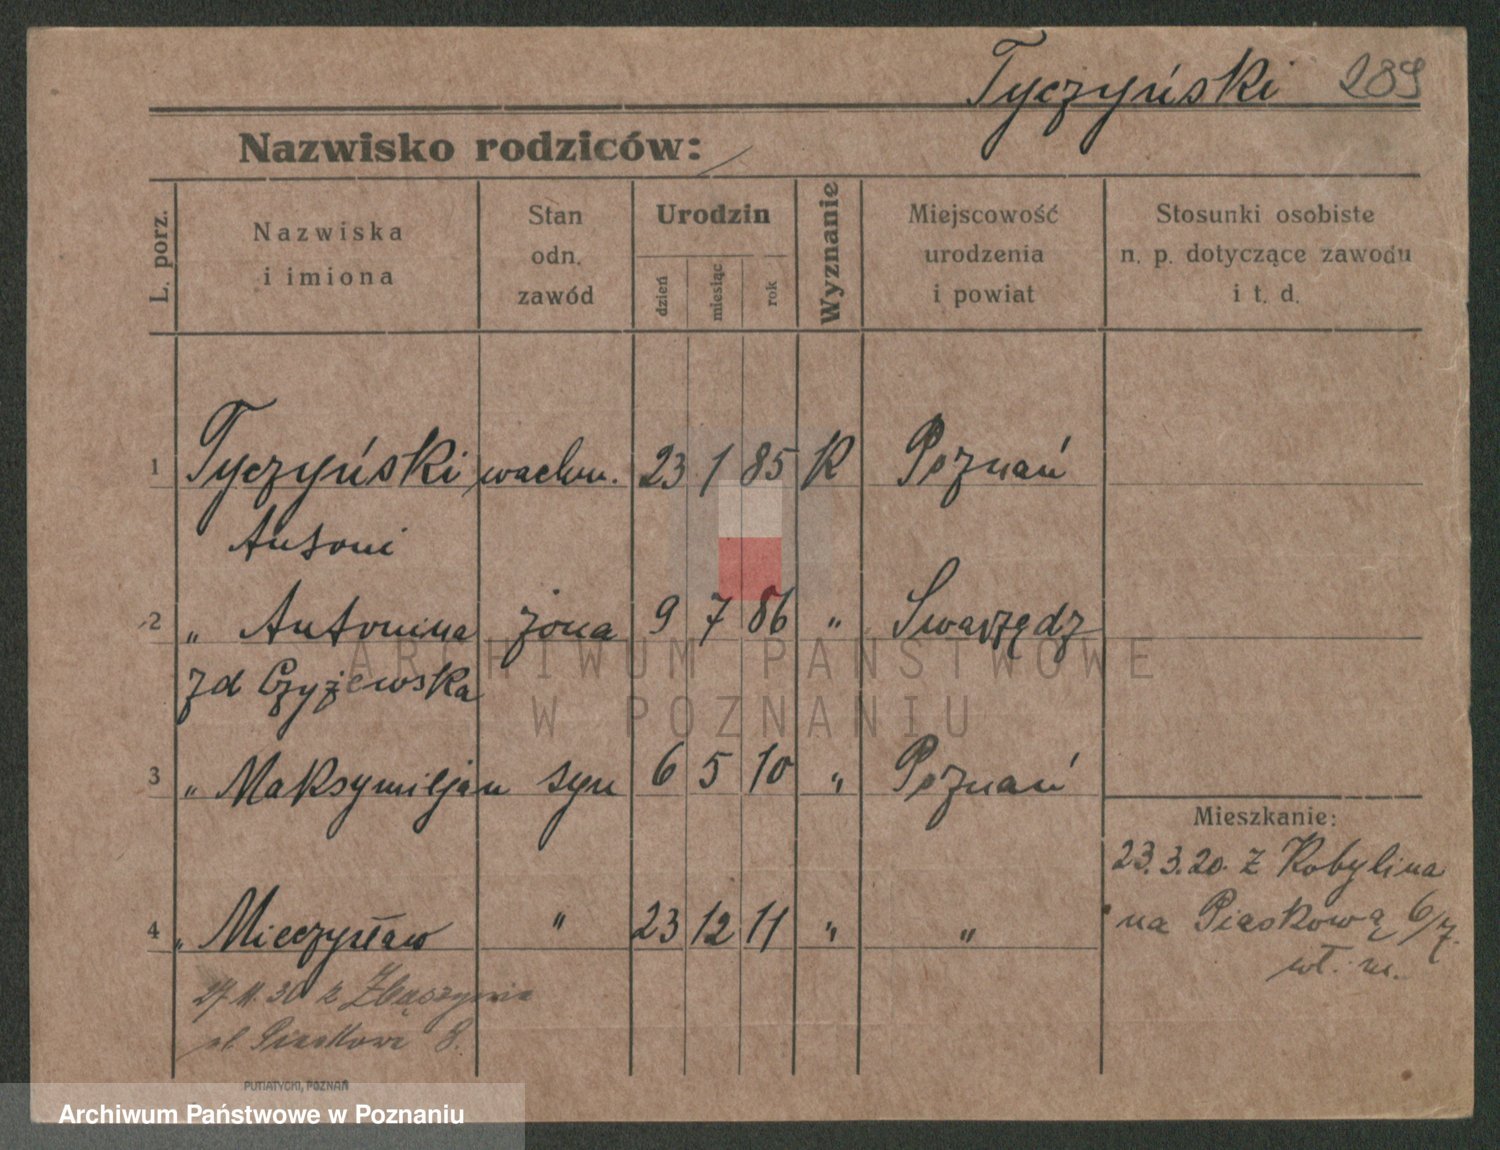 Tyczyński 289
Nazwisko rodziców:
L. porz.
Nazwiska
i imiona
Stan
odn.
zawód
Urodzin
dzień
miesiąc
rok
Wyznanie
Miejscowość
urodzenia
i powiat
Stosunki osobiste
n. p. dotyczące zawodu
i t. d.
1 Tyczyński wachm. 23 1 85 K Poznań
Antoni
2 „ Antonina żona 9 7 86 „ Swarzędz
zd Czyżewska
3 „ Maksymiljan syn 6 5 10 „ Poznań
Mieszkanie:
23.3.20. z Kobylina
na Piaskową 6/7.
wł. m.
4 „ Mieczysław „ 23 12 11 „ „
27.11.30 z Zbąszynia
ul. Piaskowa 8.
PUTIATYCKI, POZNAŃ
ARCHIWUM PAŃSTWOWE
W POZNANIU
Archiwum Państwowe w Poznaniu